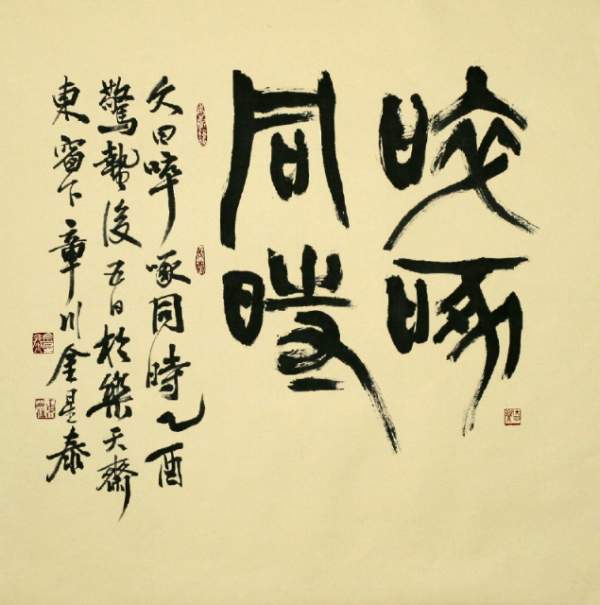 啐啄
同時
文曰啐啄同時乙酉
驚蟄後五日於樂天齋
東窗下章川金是泰